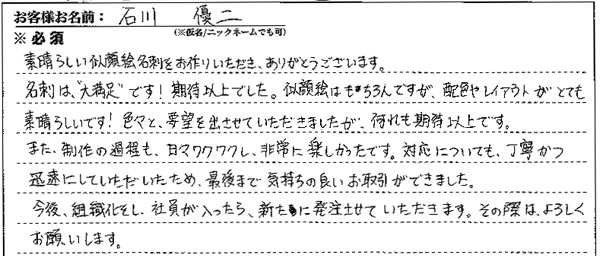 お客様お名前：石川 優二
※必須 (※仮名/ニックネームでも可)
素晴らしい似顔絵名刺をお作りいただき、ありがとうございます。
名刺は、"大満足"です！期待以上でした。似顔絵はもちろんですが、配色やレイアウトがとても
素晴らしいです！色々と、要望を出させていただきましたが、何れも期待以上です。
また、制作の過程も、日々ワクワクし、非常に楽しかったです。対応についても、丁寧かつ
迅速にしていただいたため、最後まで気持ちの良いお取引ができました。
今後、組織化をし、社員が入ったら、新たに発注させていただきます。その際は、よろしく
お願いします。